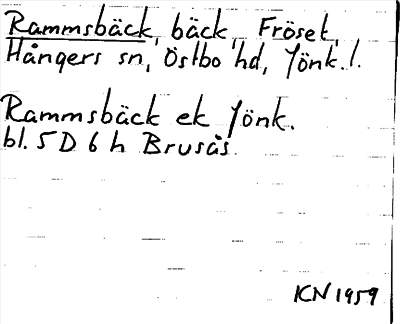 Rammsbäck, bäck, Fröset,
Hångers sn, Östbo hd, Jönk. l.
Rammsbäck ek Jönk.
bl. 5 D 6 h Brusås.
KN 1959